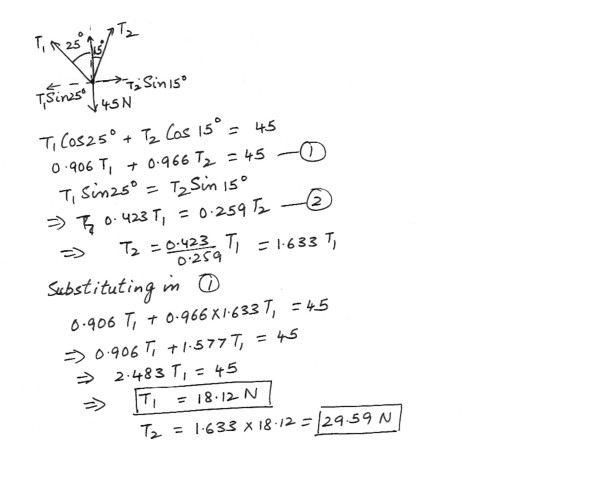 T₁ 25° 15° T₂
T₁Sin25° T₂Sin15°
45N
T₁Cos25° + T₂Cos15° = 45
0.906T₁ + 0.966T₂ = 45 — ①
T₁Sin25° = T₂Sin15°
⇒ 0.423T₁ = 0.259T₂ — ②
⇒ T₂ = 0.423/0.259 T₁ = 1.633T₁
Substituting in ①
0.906T₁ + 0.966×1.633T₁ = 45
⇒ 0.906T₁ + 1.577T₁ = 45
⇒ 2.483T₁ = 45
⇒ T₁ = 18.12N
T₂ = 1.633 × 18.12 = 29.59N